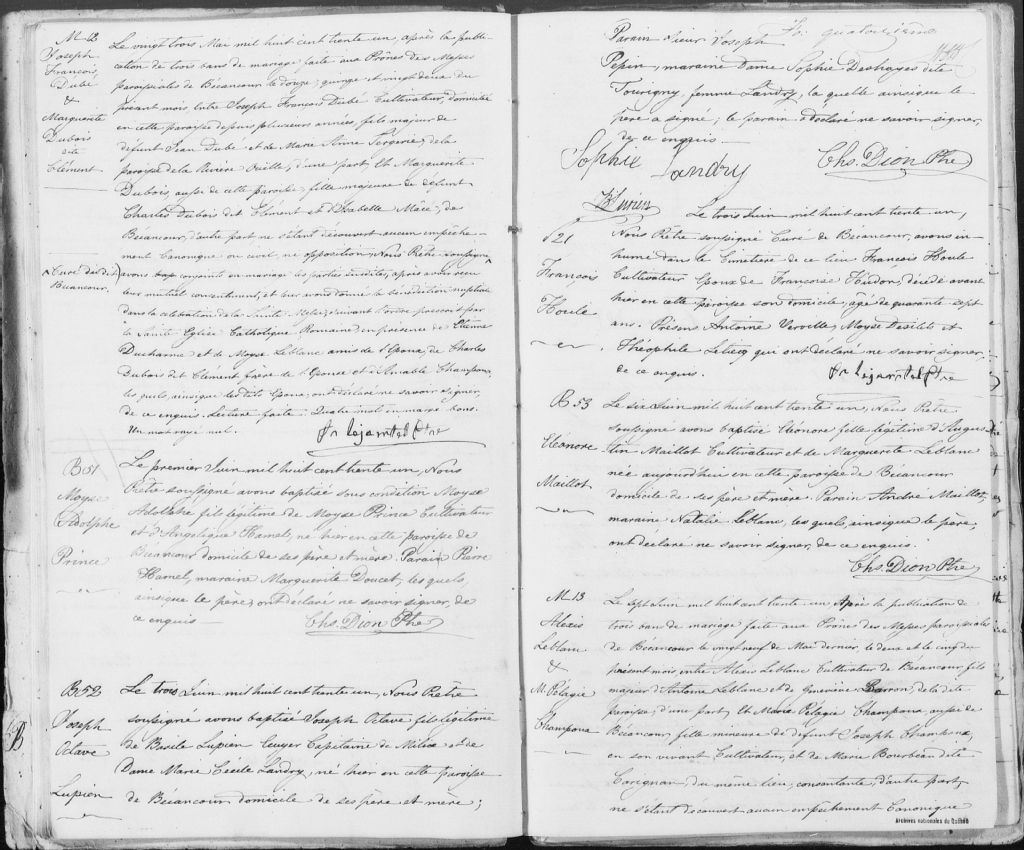 M-12
Joseph
François
Dubé
&
Marguerite
Dubois
dit
Clément
Le vingt trois Mai mil huit cent trente un, après la publi-
cation de trois bans de mariage faite aux Prônes des Messes
paroissiales de Bécancour le douze, quinze et vingt deux du
présent mois, entre Joseph François Dubé Cultivateur, domicilié
en cette paroisse depuis plusieurs années, fils majeur de
défunt Jean Dubé et de Marie Anne de la
paroisse de la Rivière Ouelle, d'une part, Et Marguerite
Dubois, aussi de cette paroisse, fille majeure de défunt
Charles Dubois dit Clément et d'Isabelle Massé, de
Bécancour, d'autre part ne s'étant découvert aucun empêche-
ment Canonique ou civil, ne opposition, Nous Prêtre soussigné
^ Curé du dit
Bécancour.
avons conjoint en mariage les parties susdites, après avoir reçu
leur mutuel consentement, et leur avons donné la bénédiction nuptiale
dans la célébration de la Sainte Messe, suivant l'ordre prescrit par
la Sainte Eglise Catholique Romaine en présence de Etienne
Ducharme et de Moyse Leblanc amis de l'Epoux, de Charles
Dubois dit Clément frère de l'Epouse et d'Amable Champoux,
les quels, ainsique les dits Epoux, ont déclaré ne savoir signer,
de ce enquis. Lecture faite. Quatre mot en marge bons.
Un mot rayé nul.
B 51
Moyse
Adolphe
Prince
Le premier Juin mil huit cent trente un, Nous
Prêtre soussigné avons baptisé sous condition Moyse
Adolphe fils légitime de Moyse Prince Cultivateur
et d'Angelique Hamel, né hier en cette paroisse de
Bécancour domicile de ses père et mère. Parain Pierre
Hamel, maraine Marguerite Doucet, les quels,
ainsique le père, ont déclaré ne savoir signer, de
ce enquis —
Chs. Dion Ptre
B 52
Joseph
Octave
Lupien
Le trois Juin mil huit cent trente un, Nous Prêtre
soussigné avons baptisé Joseph Octave fils légitime
de Basile Lupien Ecuyer Capitaine de Milice et de
Dame Marie Cécile Landry, né hier en cette paroisse
de Bécancour domicile de ses père et mère;
quatorzième
Parain sieur Joseph
Pepin, maraine Dame Sophie Deshayes dite
Tourigny, femme Landry, la quelle ainsique le
père a signé; le parain a déclaré ne savoir signer,
de ce enquis —
Sophie Landry
Chs. Dion Ptre
B Lupien
S 21
François
Houle
Le trois Juin mil huit cent trente un,
Nous Prêtre soussigné Curé de Bécancour, avons in-
humé dans le Cimetière de ce lieu François Houle
Cultivateur Epoux de Françoise Houdon, décédé avant
hier en cette paroisse son domicile, agé de quarante sept
ans. Présens Antoine Verville, Moyse Desilets et
Théophile qui ont déclaré ne savoir signer,
de ce enquis.
B. 53
Eléonore
Maillot
Le six Juin mil huit cent trente un, Nous Prêtre
soussigné avons baptisé Eléonore fille légitime d'Augus-
tin Maillot Cultivateur et de Marguerite Leblanc
née aujourd'hui en cette paroisse de Bécancour
domicile de ses père et mère. Parain André Maillot,
maraine Natalie Leblanc, les quels, ainsique le père,
ont déclaré ne savoir signer, de ce enquis.
Chs. Dion Ptre
M 13
Alexis
Leblanc
&
M. Pélagie
Champoux
Le sept Juin mil huit cent trente-un Après la publication de
trois bans de mariage faite aux Prônes des Messes paroissiales
de Bécancour le vingt neuf de Mai dernier, le deux et le cinq du
présent mois entre Alexis Leblanc Cultivateur de Bécancour, fils
majeur d'Antoine Leblanc et de Geneviève Barron, de la dite
paroisse, d'une part, Et Marie Pélagie Champoux, aussi de
Bécancour, fille mineure de défunt Joseph Champoux,
en son vivant Cultivateur, et de Marie Bourbeau dite
Carignan, du même lieu, consentante, d'autre part,
ne s'étant découvert aucun empêchement Canonique
Archives nationales du Québec